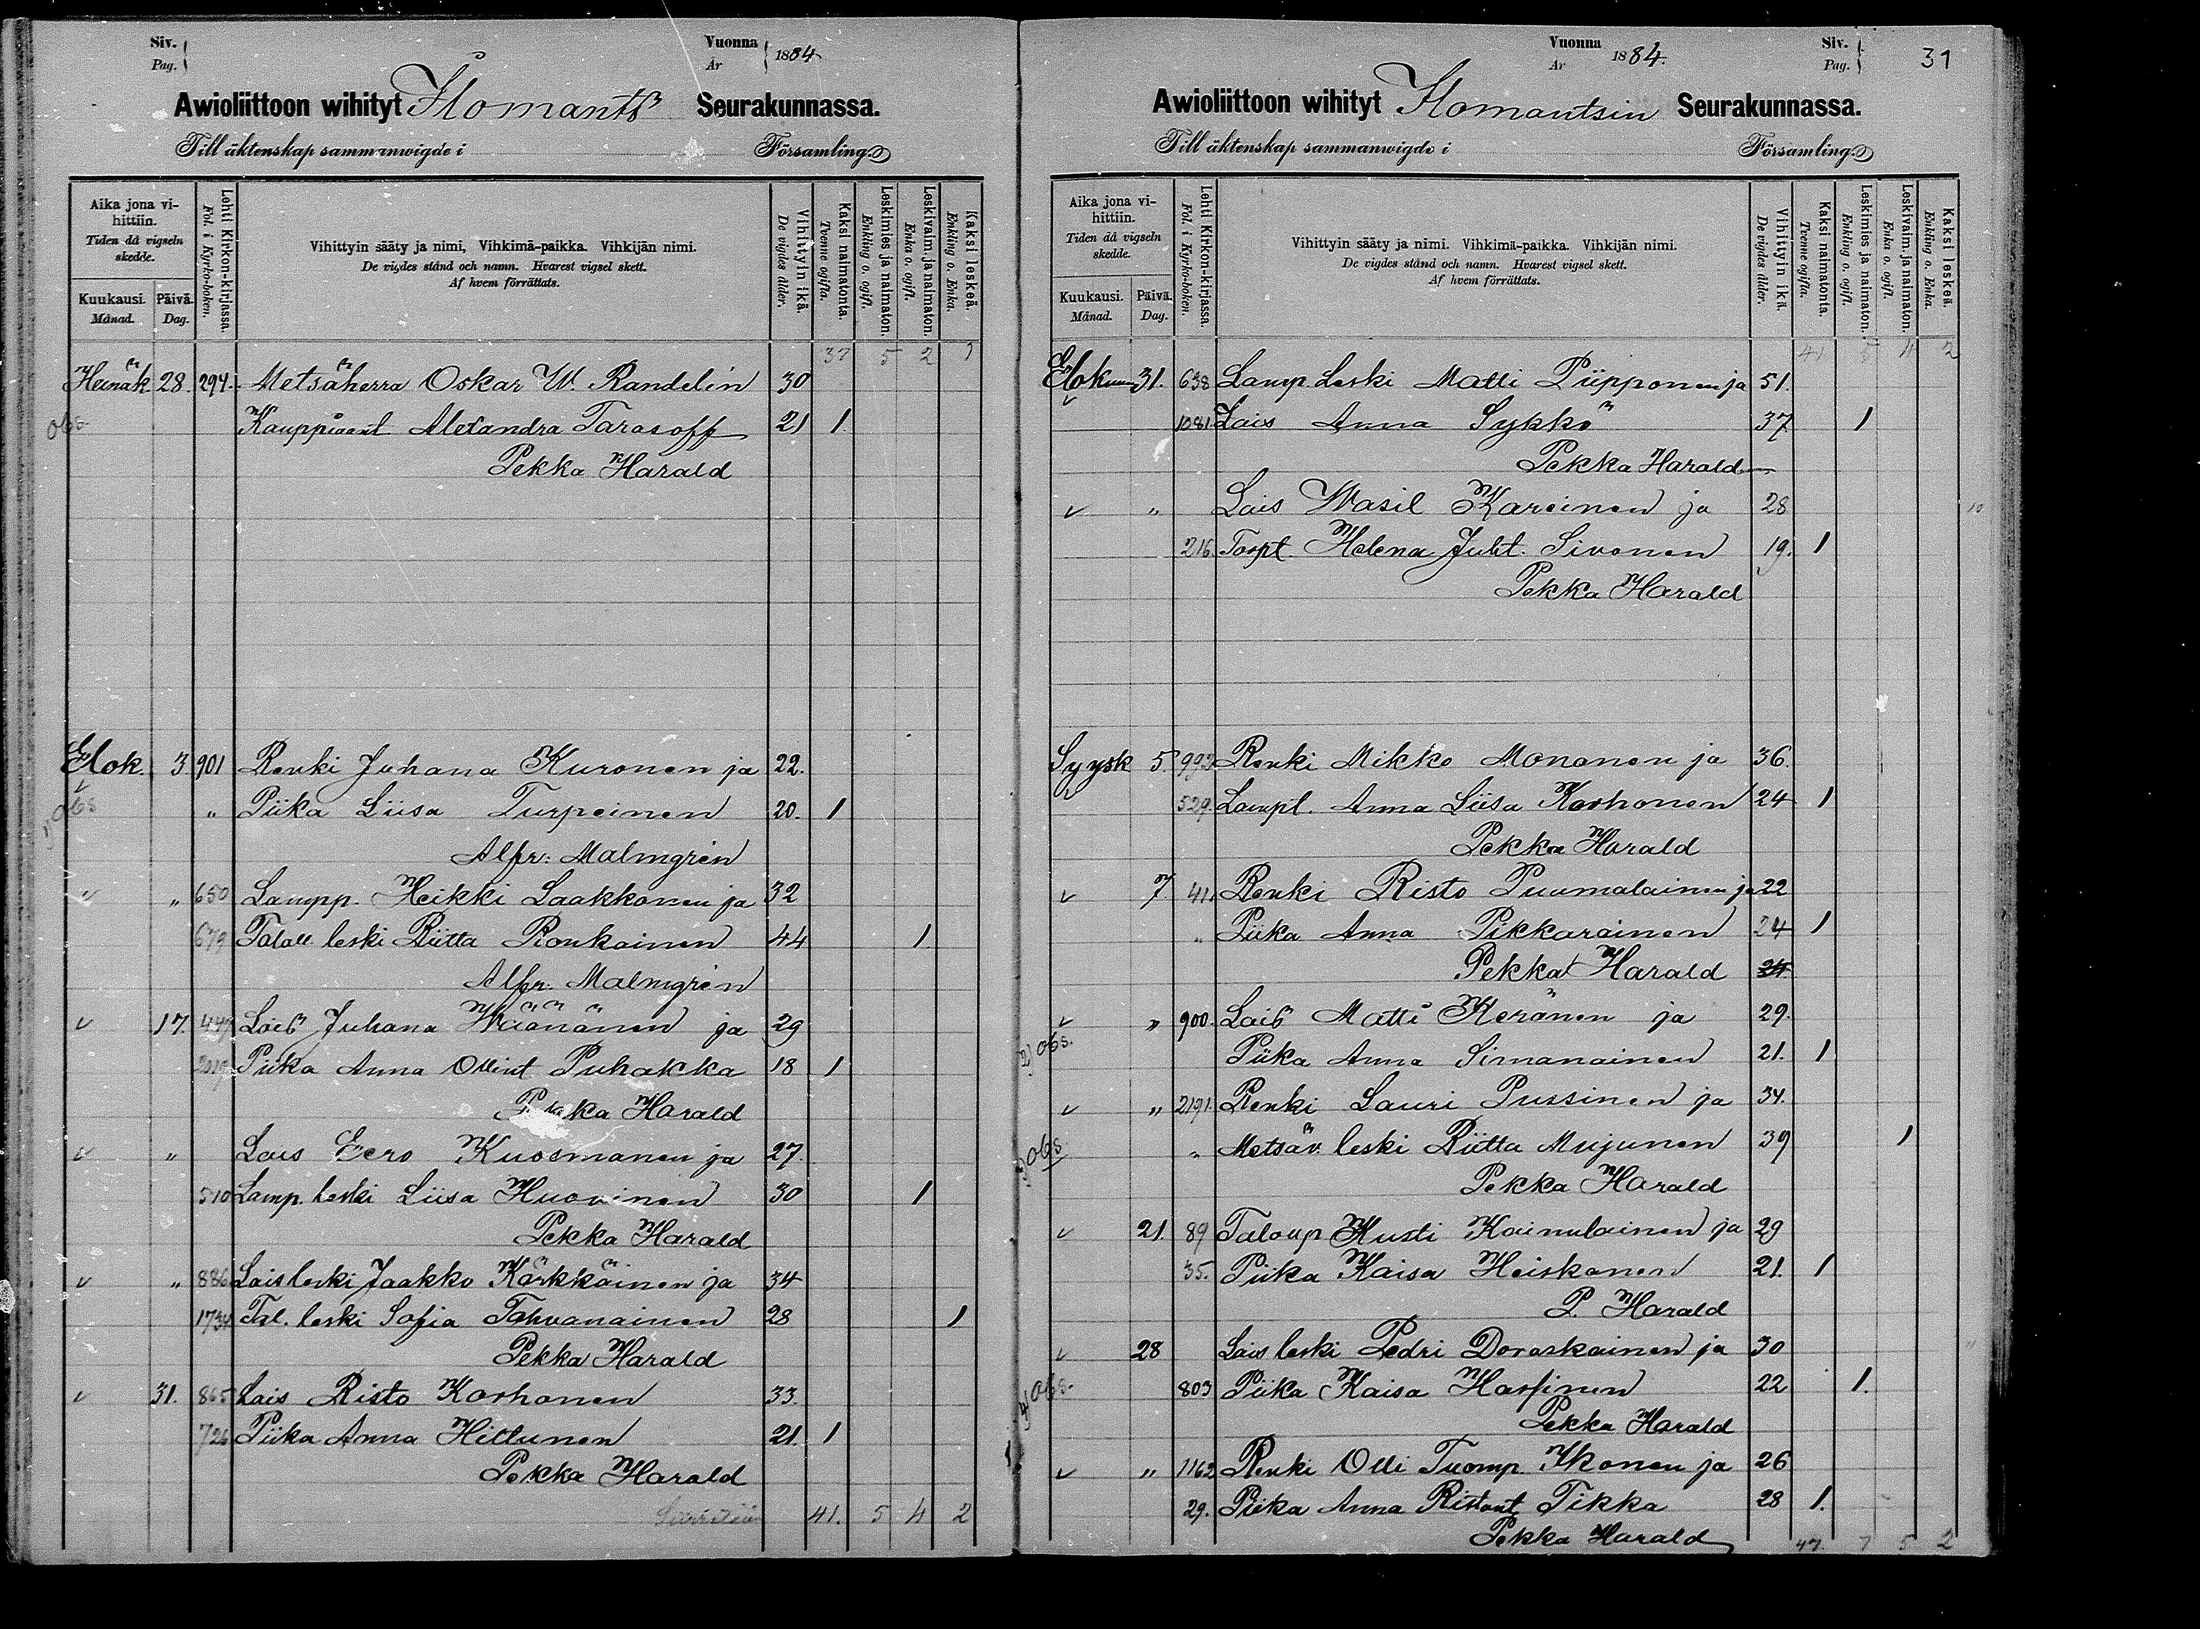 Siv.
Pag.
Vuonna 1884
År
Awioliittoon wihityt Ilomants Seurakunnassa.
Till äktenskap sammanwigde i Församling.
Aika jona vihittiin.
Tiden då vigseln skedde.
Kuukausi. Månad.
Päivä. Dag.
Lehti Kirkon-kirjassa.
Fol. i Kyrko-boken.
Vihittyin sääty ja nimi, Vihkimä-paikka. Vihkijän nimi.
De vigdes stånd och namn. Hvarest vigsel skett.
Af hvem förrättats.
Vihittyin ikä.
De vigdes ålder.
Kaksi naimatonta.
Tvenne ogifta.
Leskimies ja naimaton.
Enkling o. ogift.
Leskivaim. ja naimaton.
Enka o. ogift.
Kaksi leskeä.
Enkling o. Enka.
37 5 2 1
Heinäk 28. 294. Metsäherra Oskar W. Randelin 30
obs Kauppiaant Alexandra Tarasoff 21 1
Pekka Harald
Elok. 3. 901 Renki Juhana Kuronen ja 22.
obs " Piika Liisa Turpeinen 20. 1
Alfr: Malmgrén
" 650 Lampp. Heikki Laakkonen ja 32
679 Talall. leski Riitta Ronkainen 44 1
Alfr. Malmgrén
17. 447 Lois Juhana Väänänen ja 29
2019 Piika Anna Ollint Puhakka 18 1
Pekka Harald
" Lois Eero Kuosmanen ja 27.
510 Lamp. leski Liisa Huovinen 30 1
Pekka Harald
" 886 Lois leski Jaakko Kärkkäinen ja 34
1734 Tal. leski Sofia Tahvanainen 28 1
Pekka Harald
31. 865 Lois Risto Korhonen 33.
726 Piika Anna Hiltunen 21. 1
Pekka Harald
Siirretään 41. 5 4 2
Vuonna 1884.
År
Siv.
Pag.
31
Awioliittoon wihityt Ilomantsin Seurakunnassa.
Till äktenskap sammanwigde i Församling.
Aika jona vihittiin.
Tiden då vigseln skedde.
Kuukausi. Månad.
Päivä. Dag.
Lehti Kirkon-kirjassa.
Fol. i Kyrko-boken.
Vihittyin sääty ja nimi. Vihkimä-paikka. Vihkijän nimi.
De vigdes stånd och namn. Hvarest vigsel skett.
Af hvem förrättats.
Vihittyin ikä.
De vigdes ålder.
Kaksi naimatonta.
Tvenne ogifta.
Leskimies ja naimaton.
Enkling o. ogift.
Leskivaim. ja naimaton.
Enka o. ogift.
Kaksi leskeä.
Enkling o. Enka.
41 5 4 2
Elokuun 31. 638 Lamp. Leski Matti Piipponen ja 51.
1081 Lois Anna Sykkö 37 1
Pekka Harald
" Lois Wasil Kareinen ja 28
216. Torpt. Helena Juht. Sivonen 19. 1
Pekka Harald
Syysk 5. 992 Renki Mikko Monanen ja 36.
529. Lampl. Anna Liisa Korhonen 24 1
Pekka Harald
7. 41. Renki Risto Puumalainen ja 22
" Piika Anna Pikkarainen 24 1
Pekka Harald 24
" 900. Lois Matti Keränen ja 29.
2) obs. Piika Anna Simanainen 21. 1
" 2191. Renki Lauri Pussinen ja 34.
3) obs. " Metsäv. leski Riitta Mujunen 39 1
Pekka Harald
21. 89 Taloup. Kusti Kainulainen ja 29
35. Piika Kaisa Heiskanen 21. 1
P. Harald
28 Lois leski Pedri Doroskainen ja 30
4) obs. 803 Piika Kaisa Harsinen 22 1.
Pekka Harald
" 1162 Renki Olli Tuomp. Ikonen ja 26
29. Piika Anna Ristont Tikka 28 1.
Pekka Harald
47. 7 5 2